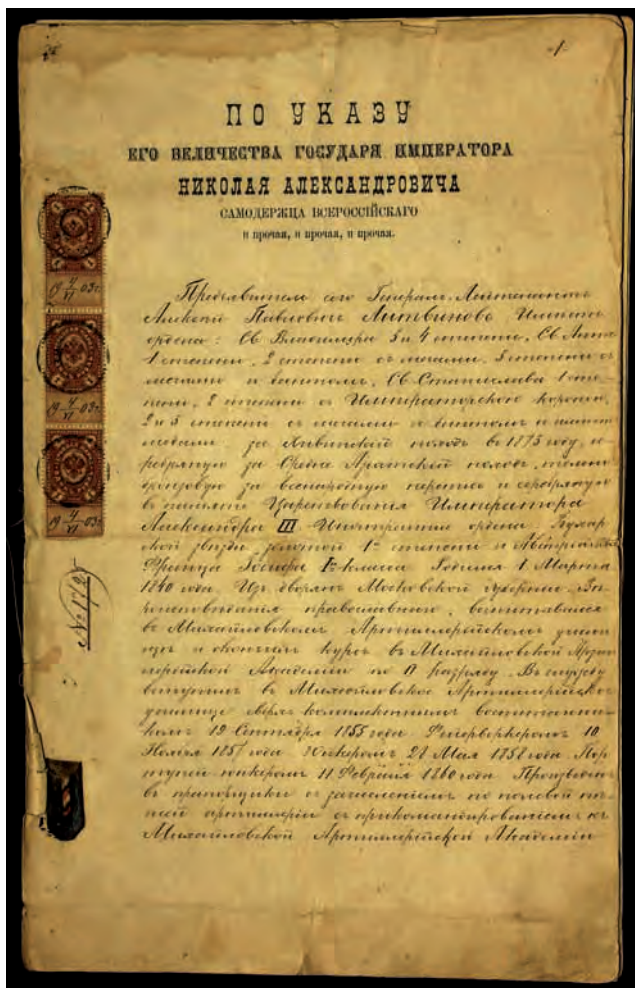 -1-
ПО УКАЗУ
ЕГО ВЕЛИЧЕСТВА ГОСУДАРЯ ИМПЕРАТОРА
НИКОЛАЯ АЛЕКСАНДРОВИЧА
САМОДЕРЖЦА ВСЕРОССІЙСКАГО
и прочая, и прочая, и прочая.
Предъявитель сего Генералъ-Лейтенантъ
Алексѣй Павловичъ Литвиновъ Имѣетъ
ордена: Св Владиміра 3 и 4 степени, Св Анны
1 степени, 2 степени съ мечами, 3 степени съ
мечами и бантомъ, Св Станислава 1 сте-
пени, 2 степени съ Императорскою короною,
2 и 3 степени съ мечами и бантомъ и
медали за Хивинскій походъ въ 1873 году, се-
ребряную за Средне Азіатскіе походы, темно
бронзовую за всенародную перепись и серебряную
въ память Царствованія Императора
Александра III Иностранные ордена Бухар
ской звѣзды золотой 1й степени и Австрійскій
Франца Іосифа 1го класса Родился 1 Марта
1840 года Изъ дворянъ Московской губерніи Вѣ-
роисповѣданія православнаго, воспитывался
въ Михайловскомъ Артиллерійскомъ учили
щѣ и окончилъ курсъ въ Михайловской Артил
лерійской Академіи по II разряду Въ службу
вступилъ въ Михайловское Артиллерійское
училище сверхъ комплектнымъ воспитанни-
комъ 12 Сентября 1855 года Фейерверкеромъ 10
Ноября 1857 года Юнкеромъ 28 Мая 1858 года Пор
тупей юнкеромъ 11 Февраля 1860 года Произведенъ
въ прапорщики съ зачисленіемъ по полевой пѣ-
шей артиллеріи съ прикомандированіемъ къ
Михайловской Артиллерійской Академіи
19 4/VI 03г.
19 4/VI 03г.
19 4/VI 03г.